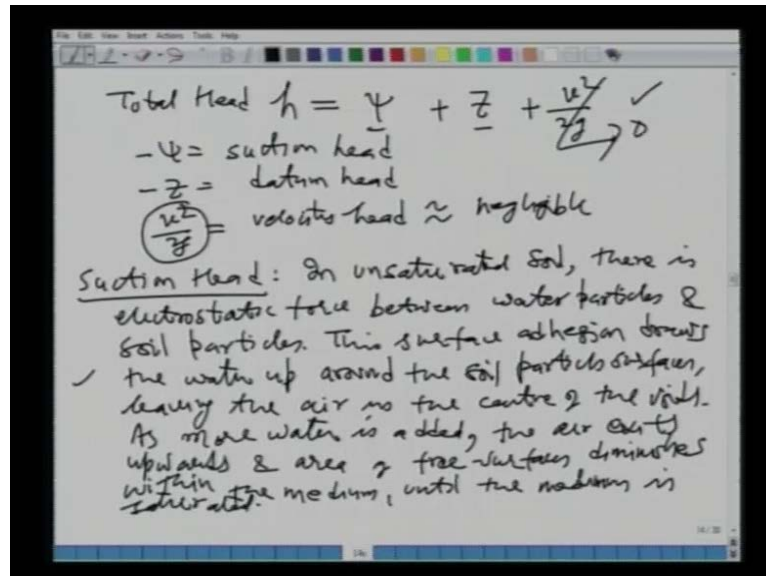 File Edit View Insert Actions Tools Help
Total Head h = ψ + z + v²/2g ✓ → 0
- ψ = suction head
- z = datum head
v²/2g = velocity head ≈ negligible
Suction Head : In unsaturated soil, there is
electrostatic force between water particles &
soil particles. This surface adhesion draws
✓ the water up around the soil particle surfaces,
leaving the air in the centre of the voids.
As more water is added, the air exits
upwards & area of free surfaces diminishes
within the medium, until the medium is
saturated.